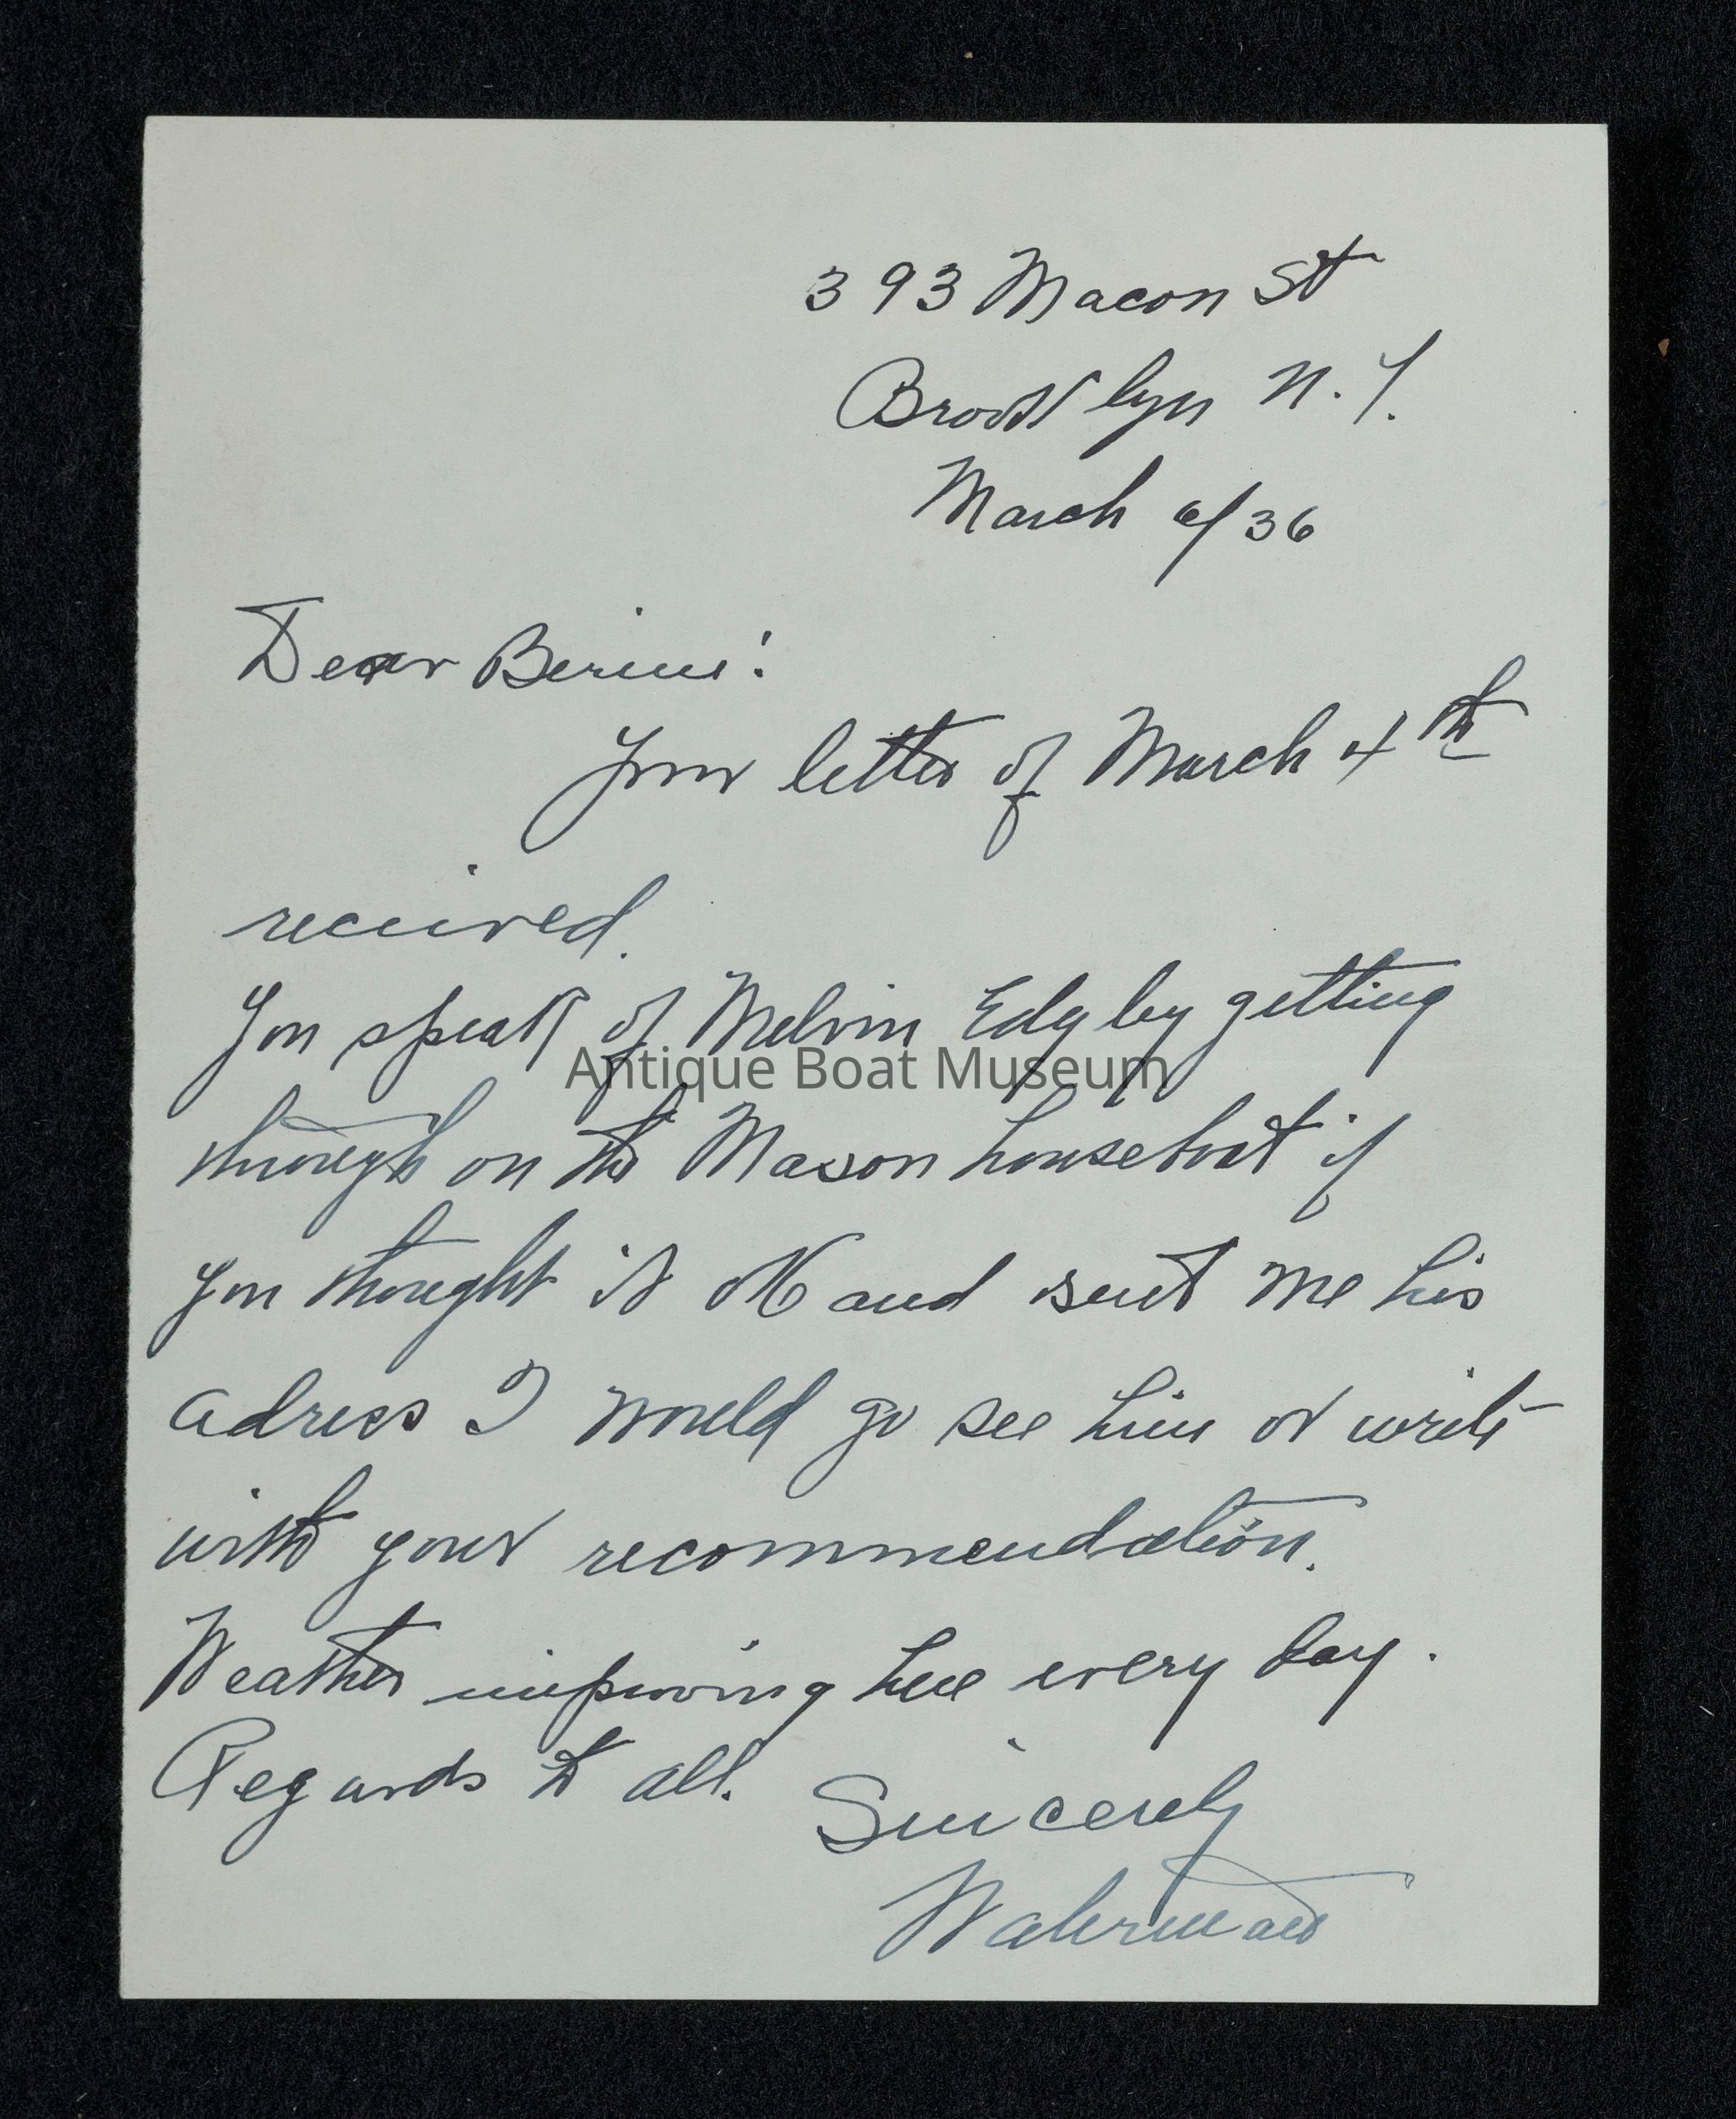 393 Macon St
Brooklyn N.Y.
March 6/36
Dear Bernie:
Your letter of March 4th
received.
You speak of Melvin getting
Antique Boat Museum
through on the Mason houseboat if
you thought it OK and sent me his
adress I would go see him or write
with your recommendation.
Weather improving here every day.
Regards to all.
Sincerely
Waterman